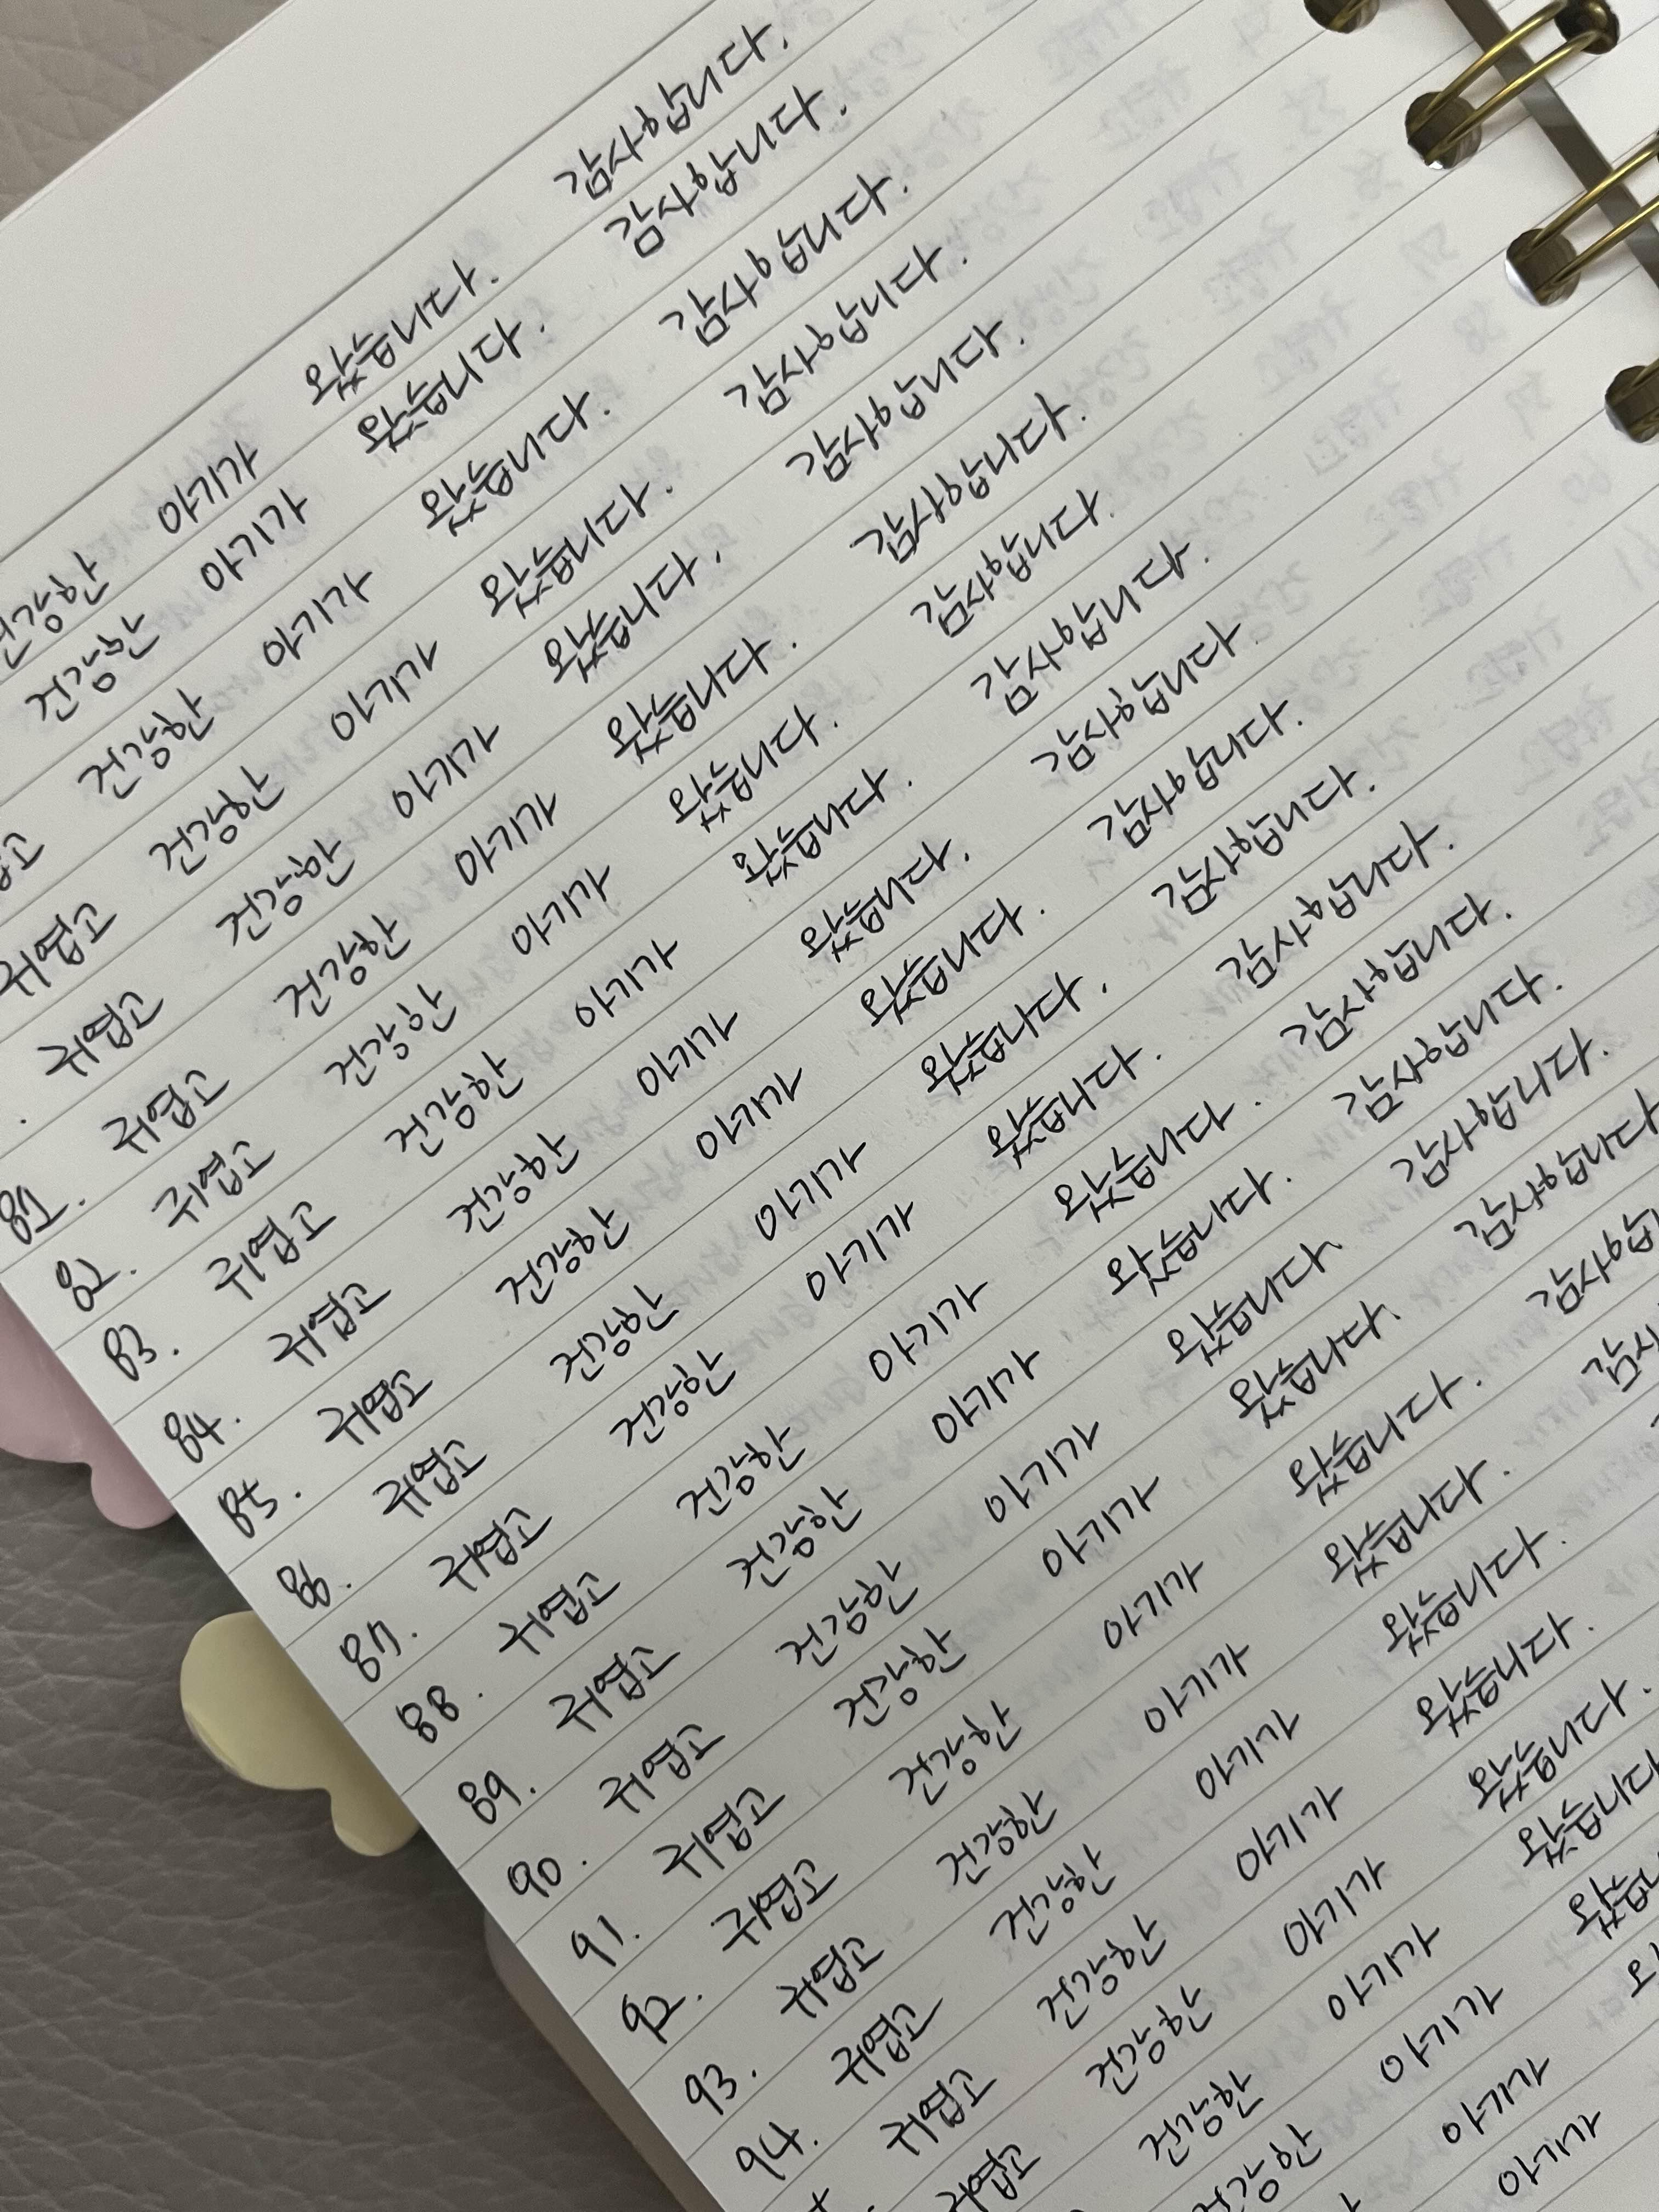 건강한 아기가 왔습니다. 감사합니다.
건강한 아기가 왔습니다. 감사합니다.
건강한 아기가 왔습니다. 감사합니다.
귀엽고 건강한 아기가 왔습니다. 감사합니다.
귀엽고 건강한 아기가 왔습니다. 감사합니다.
81. 귀엽고 건강한 아기가 왔습니다. 감사합니다.
82. 귀엽고 건강한 아기가 왔습니다. 감사합니다.
83. 귀엽고 건강한 아기가 왔습니다. 감사합니다.
84. 귀엽고 건강한 아기가 왔습니다. 감사합니다.
85. 귀엽고 건강한 아기가 왔습니다. 감사합니다.
86. 귀엽고 건강한 아기가 왔습니다. 감사합니다.
87. 귀엽고 건강한 아기가 왔습니다. 감사합니다.
88. 귀엽고 건강한 아기가 왔습니다. 감사합니다.
89. 귀엽고 건강한 아기가 왔습니다. 감사합니다.
90. 귀엽고 건강한 아기가 왔습니다. 감사합니다.
91. 귀엽고 건강한 아기가 왔습니다. 감사합니다
92. 귀엽고 건강한 아기가 왔습니다. 감사합
93. 귀엽고 건강한 아기가 왔습니다. 감사
94. 귀엽고 건강한 아기가 왔습니다.
귀엽고 건강한 아기가 왔습니다.
귀엽고 건강한 아기가 왔습니다
건강한 아기가 왔습
건강한 아기가
아기가
아기가